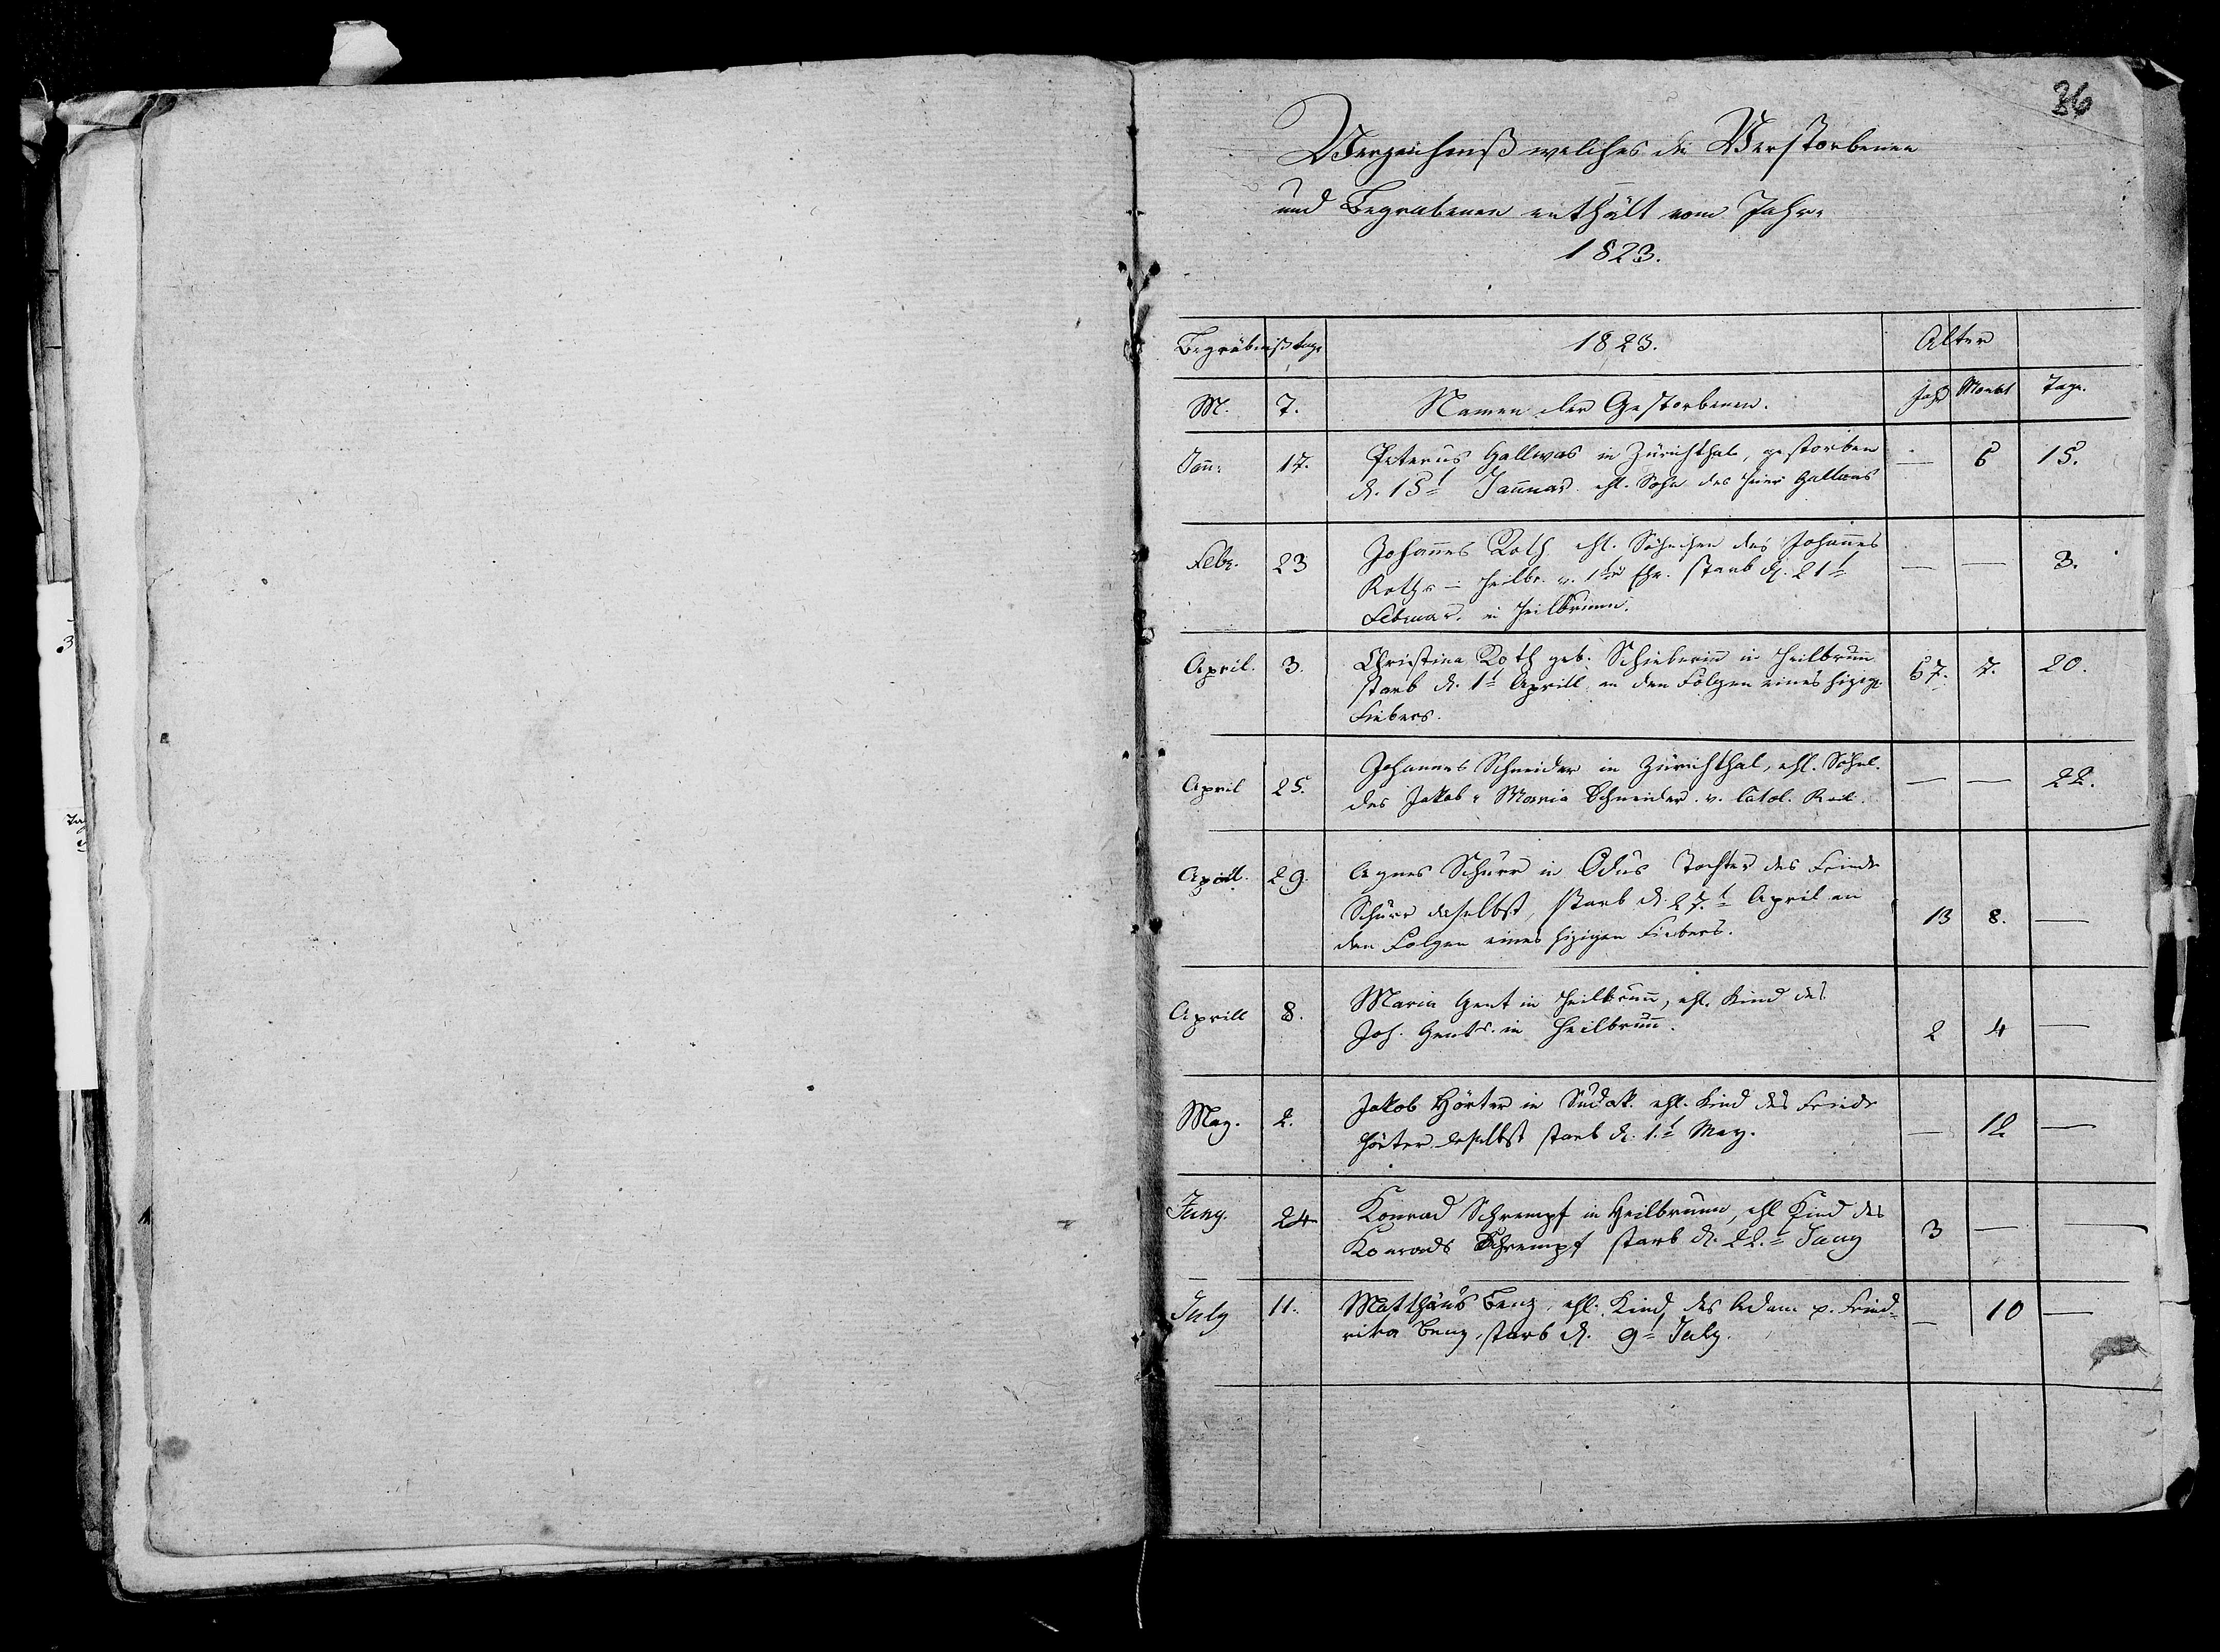 36
Verzeichniß welches die Verstorbenen
und Begrabenen enthält vom Jahre
1823.
Begräbnißtage 1823. Alter
M. T. Namen der Gestorbenen. Jahr Monat Tage.
Jañ: 17. Peterus Gallwas in Zürichthal, gestorben — 6 15.
d. 15t Jannuar. ehl. Sohn des Gallwas
Febr. 23 Johañes Roth ehl. Söhnchen des Johañes — — 3.
Roths Heilbr. v. 1ter Ehe. starb d. 21t
Februar. in Heilbrunn.
April. 3. Christina Roth geb. Schieberin in Heilbruñ 67. 7. 20.
starb d. 1t Aprill an den Folgen eines hizig.
Fiebers.
April 25. Johannes Schneider in Zürichthal, ehl. Söhnl. — — 22.
des Jakob u Maria Schneider. v. Catol. Rel.
Aprill. 29. Agnes Schurr in Odus Tochter des Friedr
Schurr daselbst, starb d. 27.t April an 13 8. —
den Folgen eines hizigen Fiebers.
Aprill 8. Maria Gent in Heilbruñ, ehl. Kind des
Joh. Gents. in Heilbruñ. 2 4 —
May. 2. Jakob Hörter in Sudak. ehl. Kind des Friedr — 12 —
Hörter daselbst starb d. 1.t May.
Juny. 24 Konrad Schrempf in Heilbrunn, ehl Kind des 3 — —
Konrads Schrempf starb d. 22.t Juny
July 11. Matthäus Benz, ehl. Kind des Adam u. Fried- — 10 —
rika Benz, starb d. 9t July.